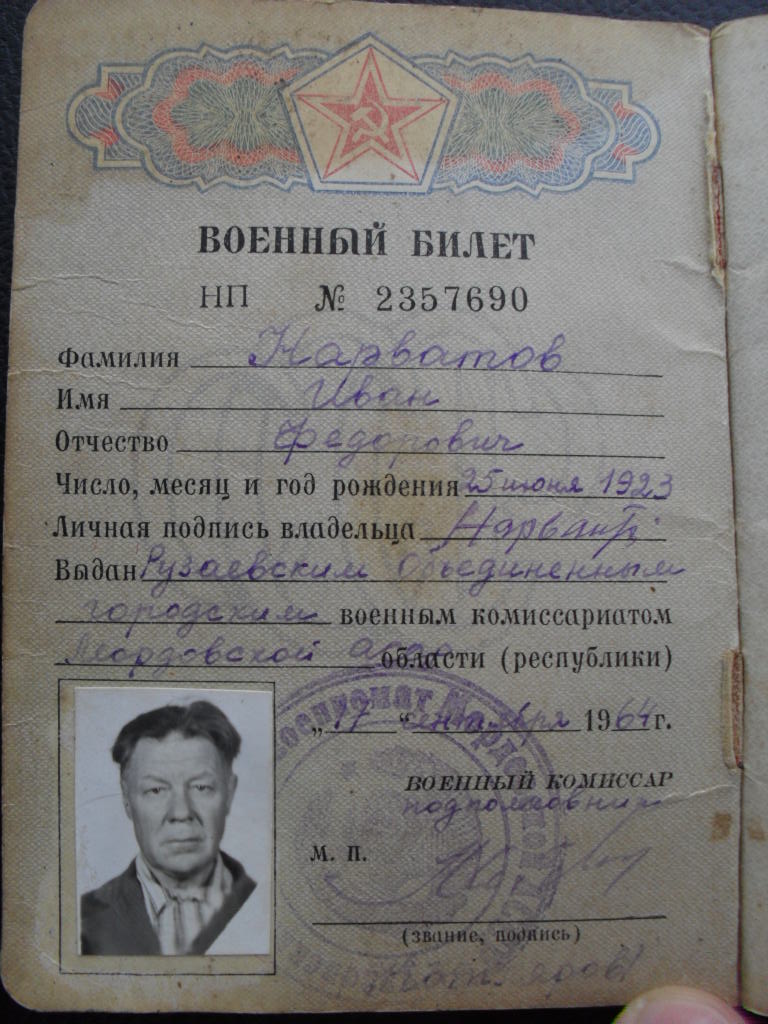 ВОЕННЫЙ БИЛЕТ
НП № 2357690
Фамилия Нарватов
Имя Иван
Отчество Федорович
Число, месяц и год рождения 25 июня 1923
Личная подпись владельца
Выдан Рузаевским Объединенным
городским военным комиссариатом
Мордовской асср области (республики)
„17 “ сентября 1964 г.
ВОЕННЫЙ КОМИССАР
подполковник
М. П.
(звание, подпись)